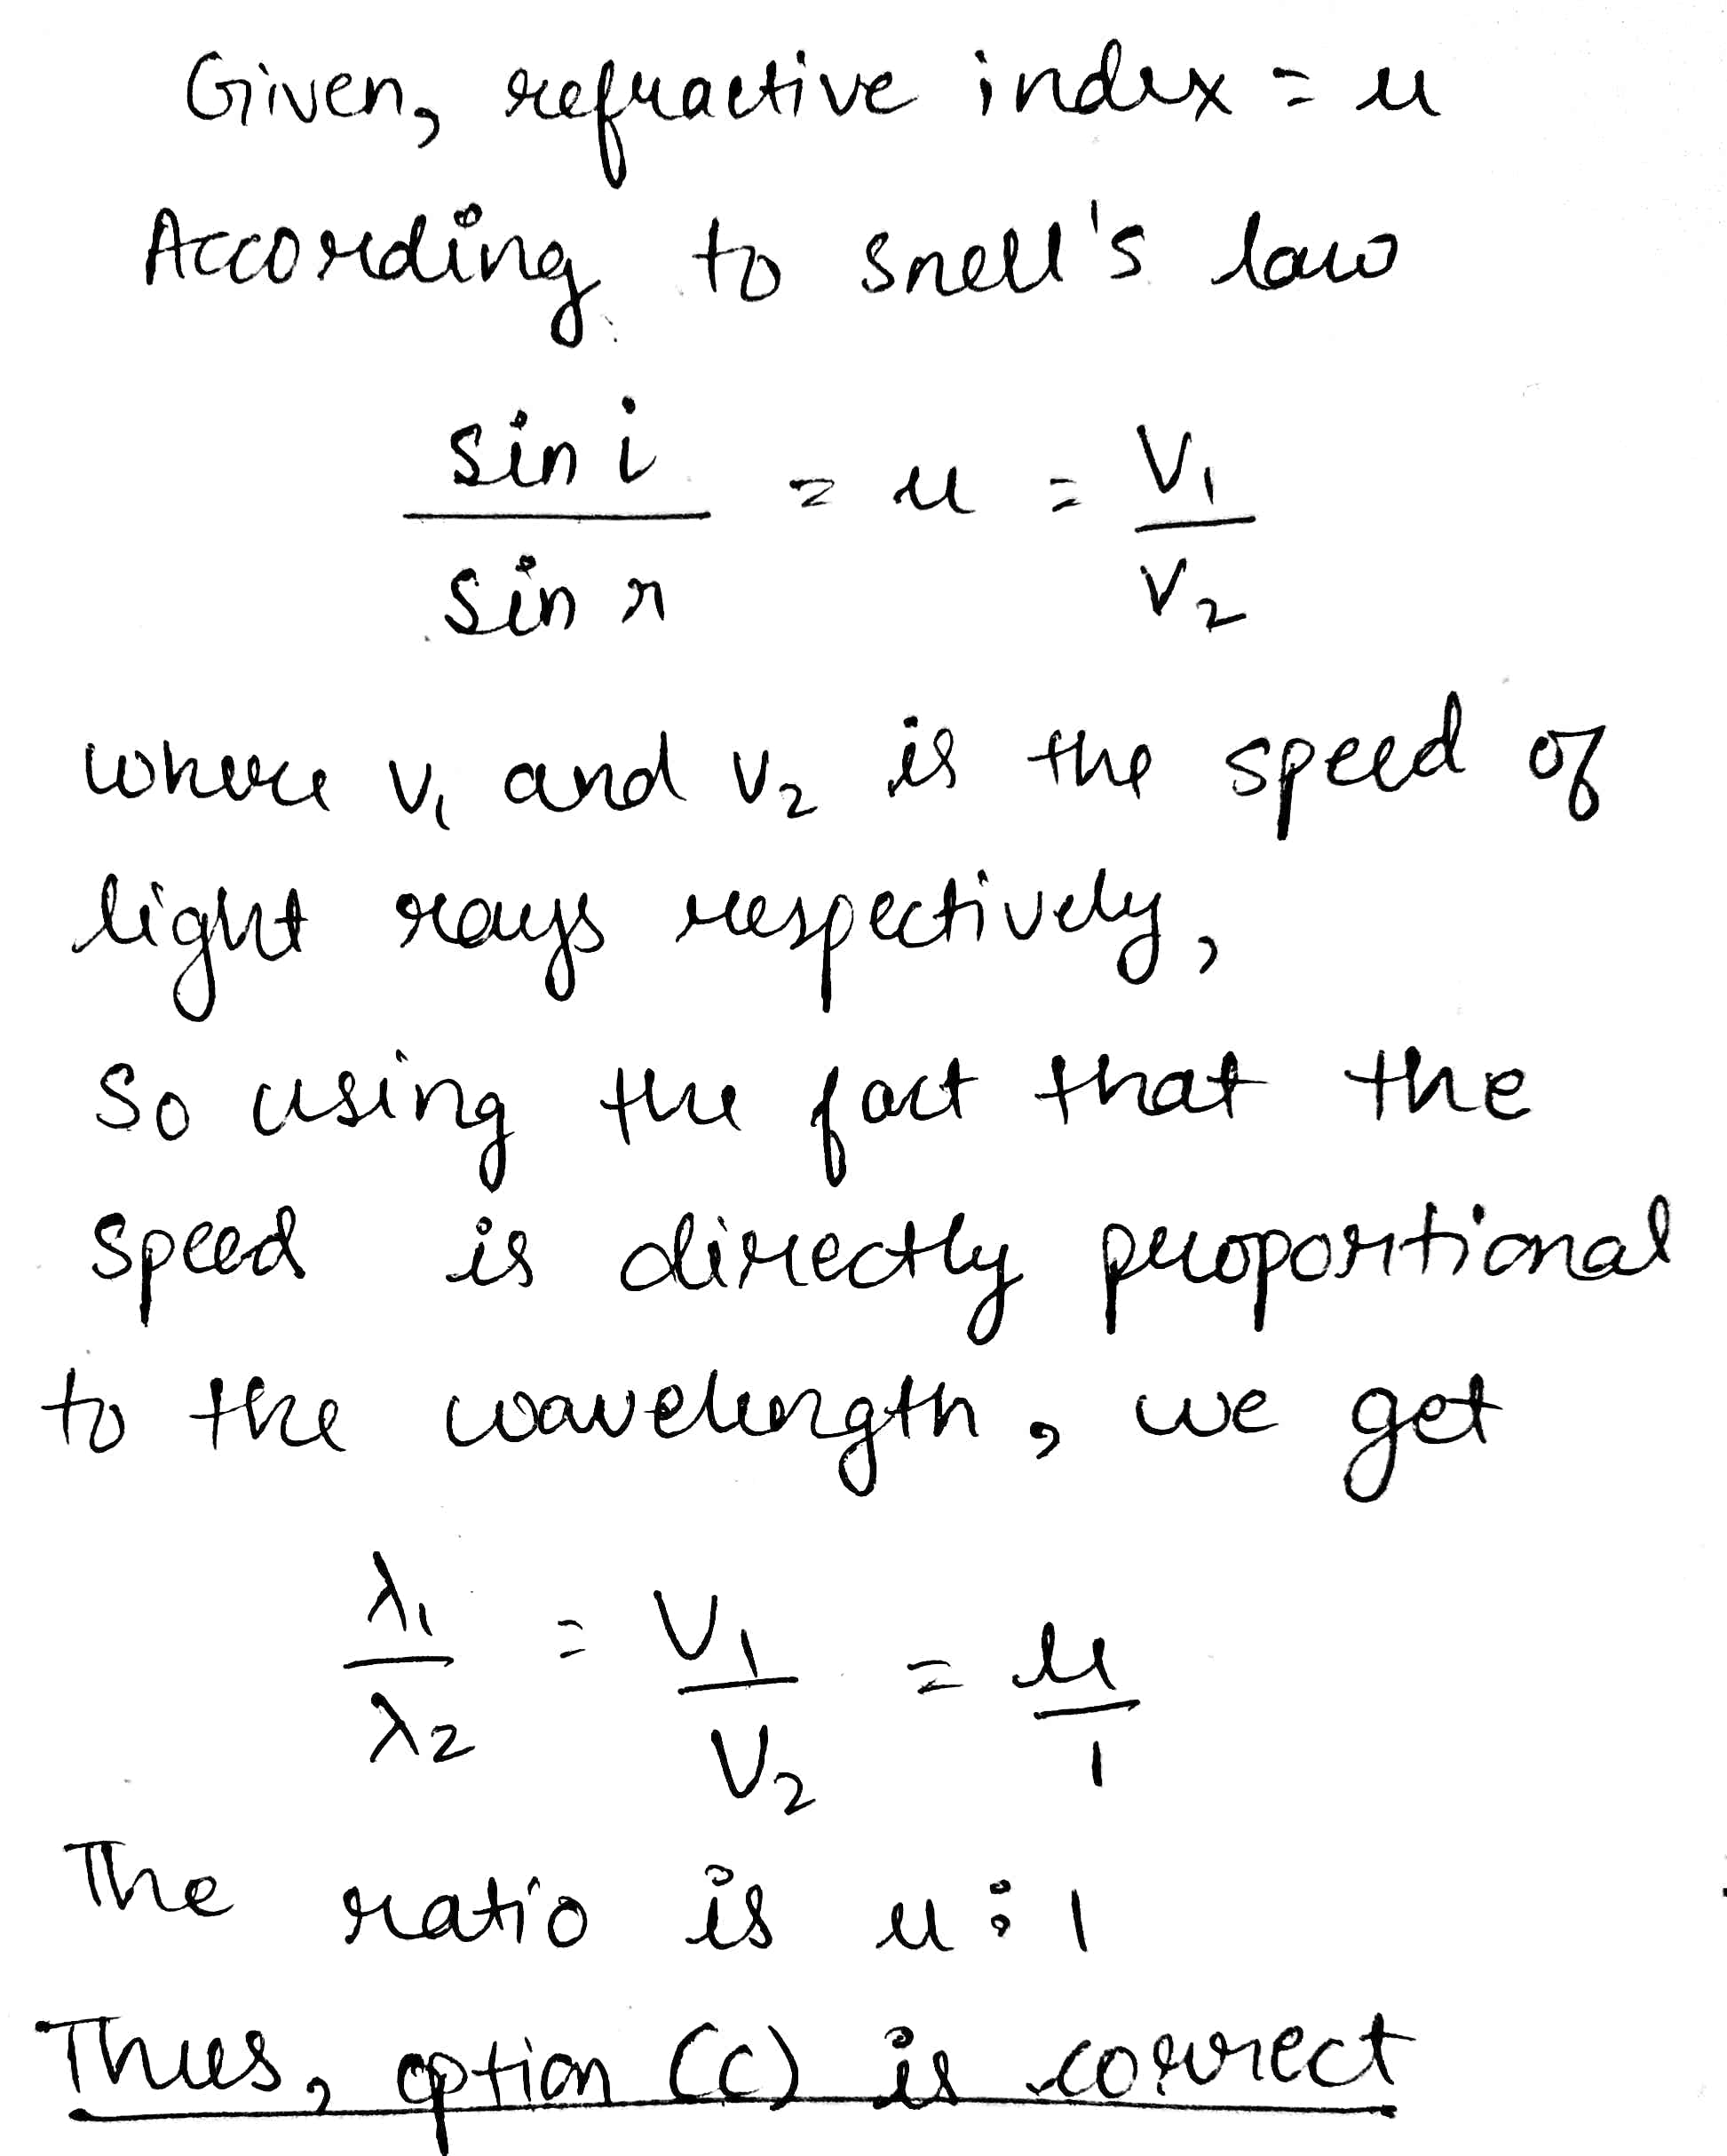 Given, refractive index = u
According to snell's law
sin i / sin r = u = V1 / V2
where v1 and v2 is the speed of
light rays respectively,
So using the fact that the
speed is directly proportional
to the wavelength, we get
λ1 / λ2 = V1 / V2 = u / 1
The ratio is u : 1
Thus, option (c) is correct